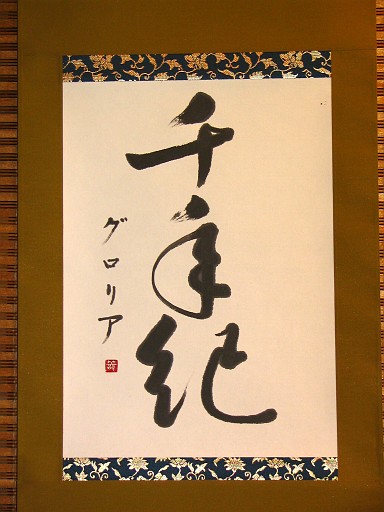 千年紀
グロリア